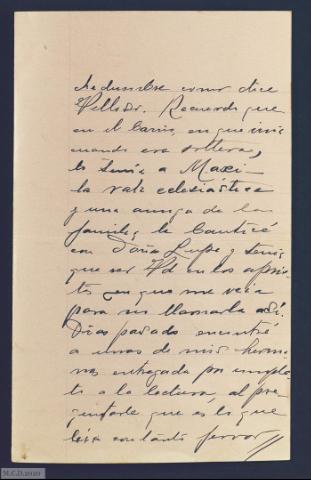 chedumbre como dice
Velloso. Recuerdo que
en el barrio, en que vivia
cuando era soltera,
la tenia a Maxi-
la rata eclesiástica
y una amiga de la
familia, la bautizó
con Doña Lupe, y tenia
que ser Vd en los
en que me veia
para no llamarla así.
Dias pasado encontré
a unas de mis herma-
nas entregada por comple-
to a la lectura, al pre-
guntarle que es lo que
leia con tanto fervor
M.C.D.2020